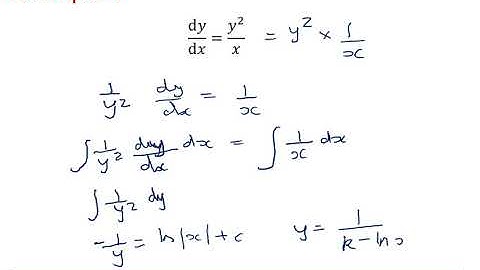 dy/dx = y²/x = y² × 1/x
1/y² dy/dx = 1/x
∫ 1/y² dy/dx dx = ∫ 1/x dx
∫ 1/y² dy
-1/y = ln|x| + c
y = 1/(k - ln